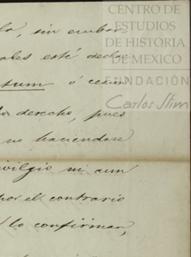 CENTRO DE
ESTUDIOS
DE HISTORIA
DE MEXICO
FUNDACIÓN
Carlos Slim
lo, sin embar
ales esté decla
tum ó com
derecho, pues
no haciendose
vilegio ni aun
por el contrario
lo confirman,